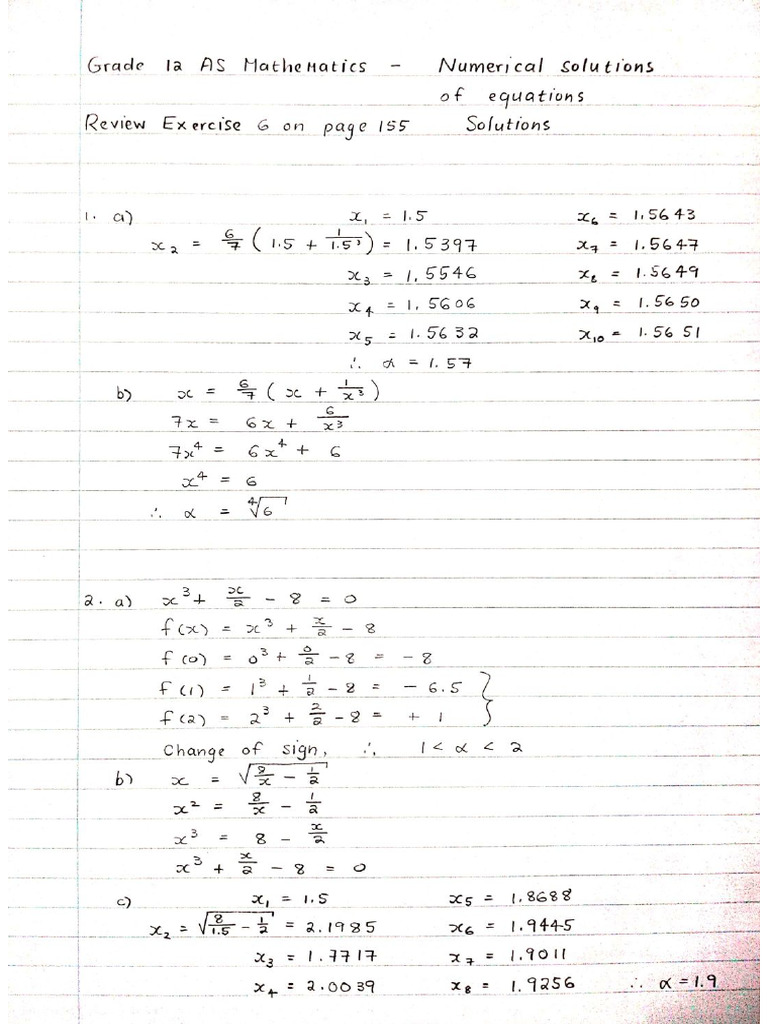 Grade 12 AS Mathematics - Numerical solutions
of equations
Review Exercise 6 on page 155 Solutions
1. a) x₁ = 1.5 x₆ = 1.5643
x₂ = 6/7 ( 1.5 + 1/1.5³ ) = 1.5397 x₇ = 1.5647
x₃ = 1.5546 x₈ = 1.5649
x₄ = 1.5606 x₉ = 1.5650
x₅ = 1.5632 x₁₀ = 1.5651
∴ α = 1.57
b) x = 6/7 ( x + 1/x³ )
7x = 6x + 6/x³
7x⁴ = 6x⁴ + 6
x⁴ = 6
∴ α = ∜6
2. a) x³ + x/2 - 8 = 0
f(x) = x³ + x/2 - 8
f(0) = 0³ + 0/2 - 8 = - 8
f(1) = 1³ + 1/2 - 8 = - 6.5 }
f(2) = 2³ + 2/2 - 8 = + 1 }
Change of sign, ∴ 1 < α < 2
b) x = √(8/x - 1/2)
x² = 8/x - 1/2
x³ = 8 - x/2
x³ + x/2 - 8 = 0
c) x₁ = 1.5 x₅ = 1.8688
x₂ = √(8/1.5 - 1/2) = 2.1985 x₆ = 1.9445
x₃ = 1.7717 x₇ = 1.9011
x₄ = 2.0039 x₈ = 1.9256 ∴ α = 1.9